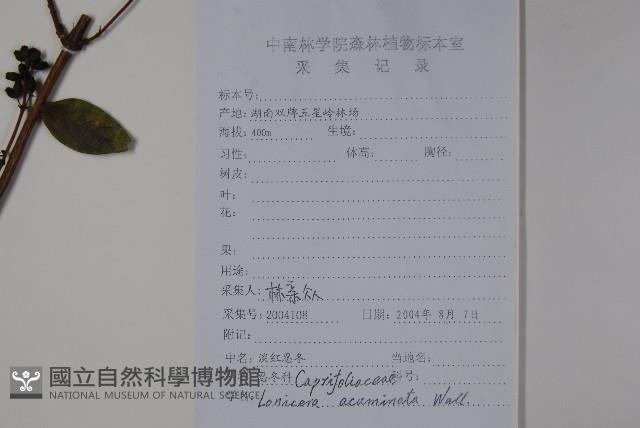 中南林学院森林植物标本室
采集记录
标本号:
产地: 湖南双牌五星岭林场
海拔: 400m 生境:
习性: 体高: 胸径:
树皮:
叶:
花:
果:
用途:
采集人: 林亲众
采集号: 2004108 日期: 2004年 8月 7日
附记:
中名: 淡红忍冬 当地名:
忍冬科 Caprifoliaceae 科号:
学名: Lonicera acuminata Wall.
國立自然科學博物館
NATIONAL MUSEUM OF NATURAL SCIENCE